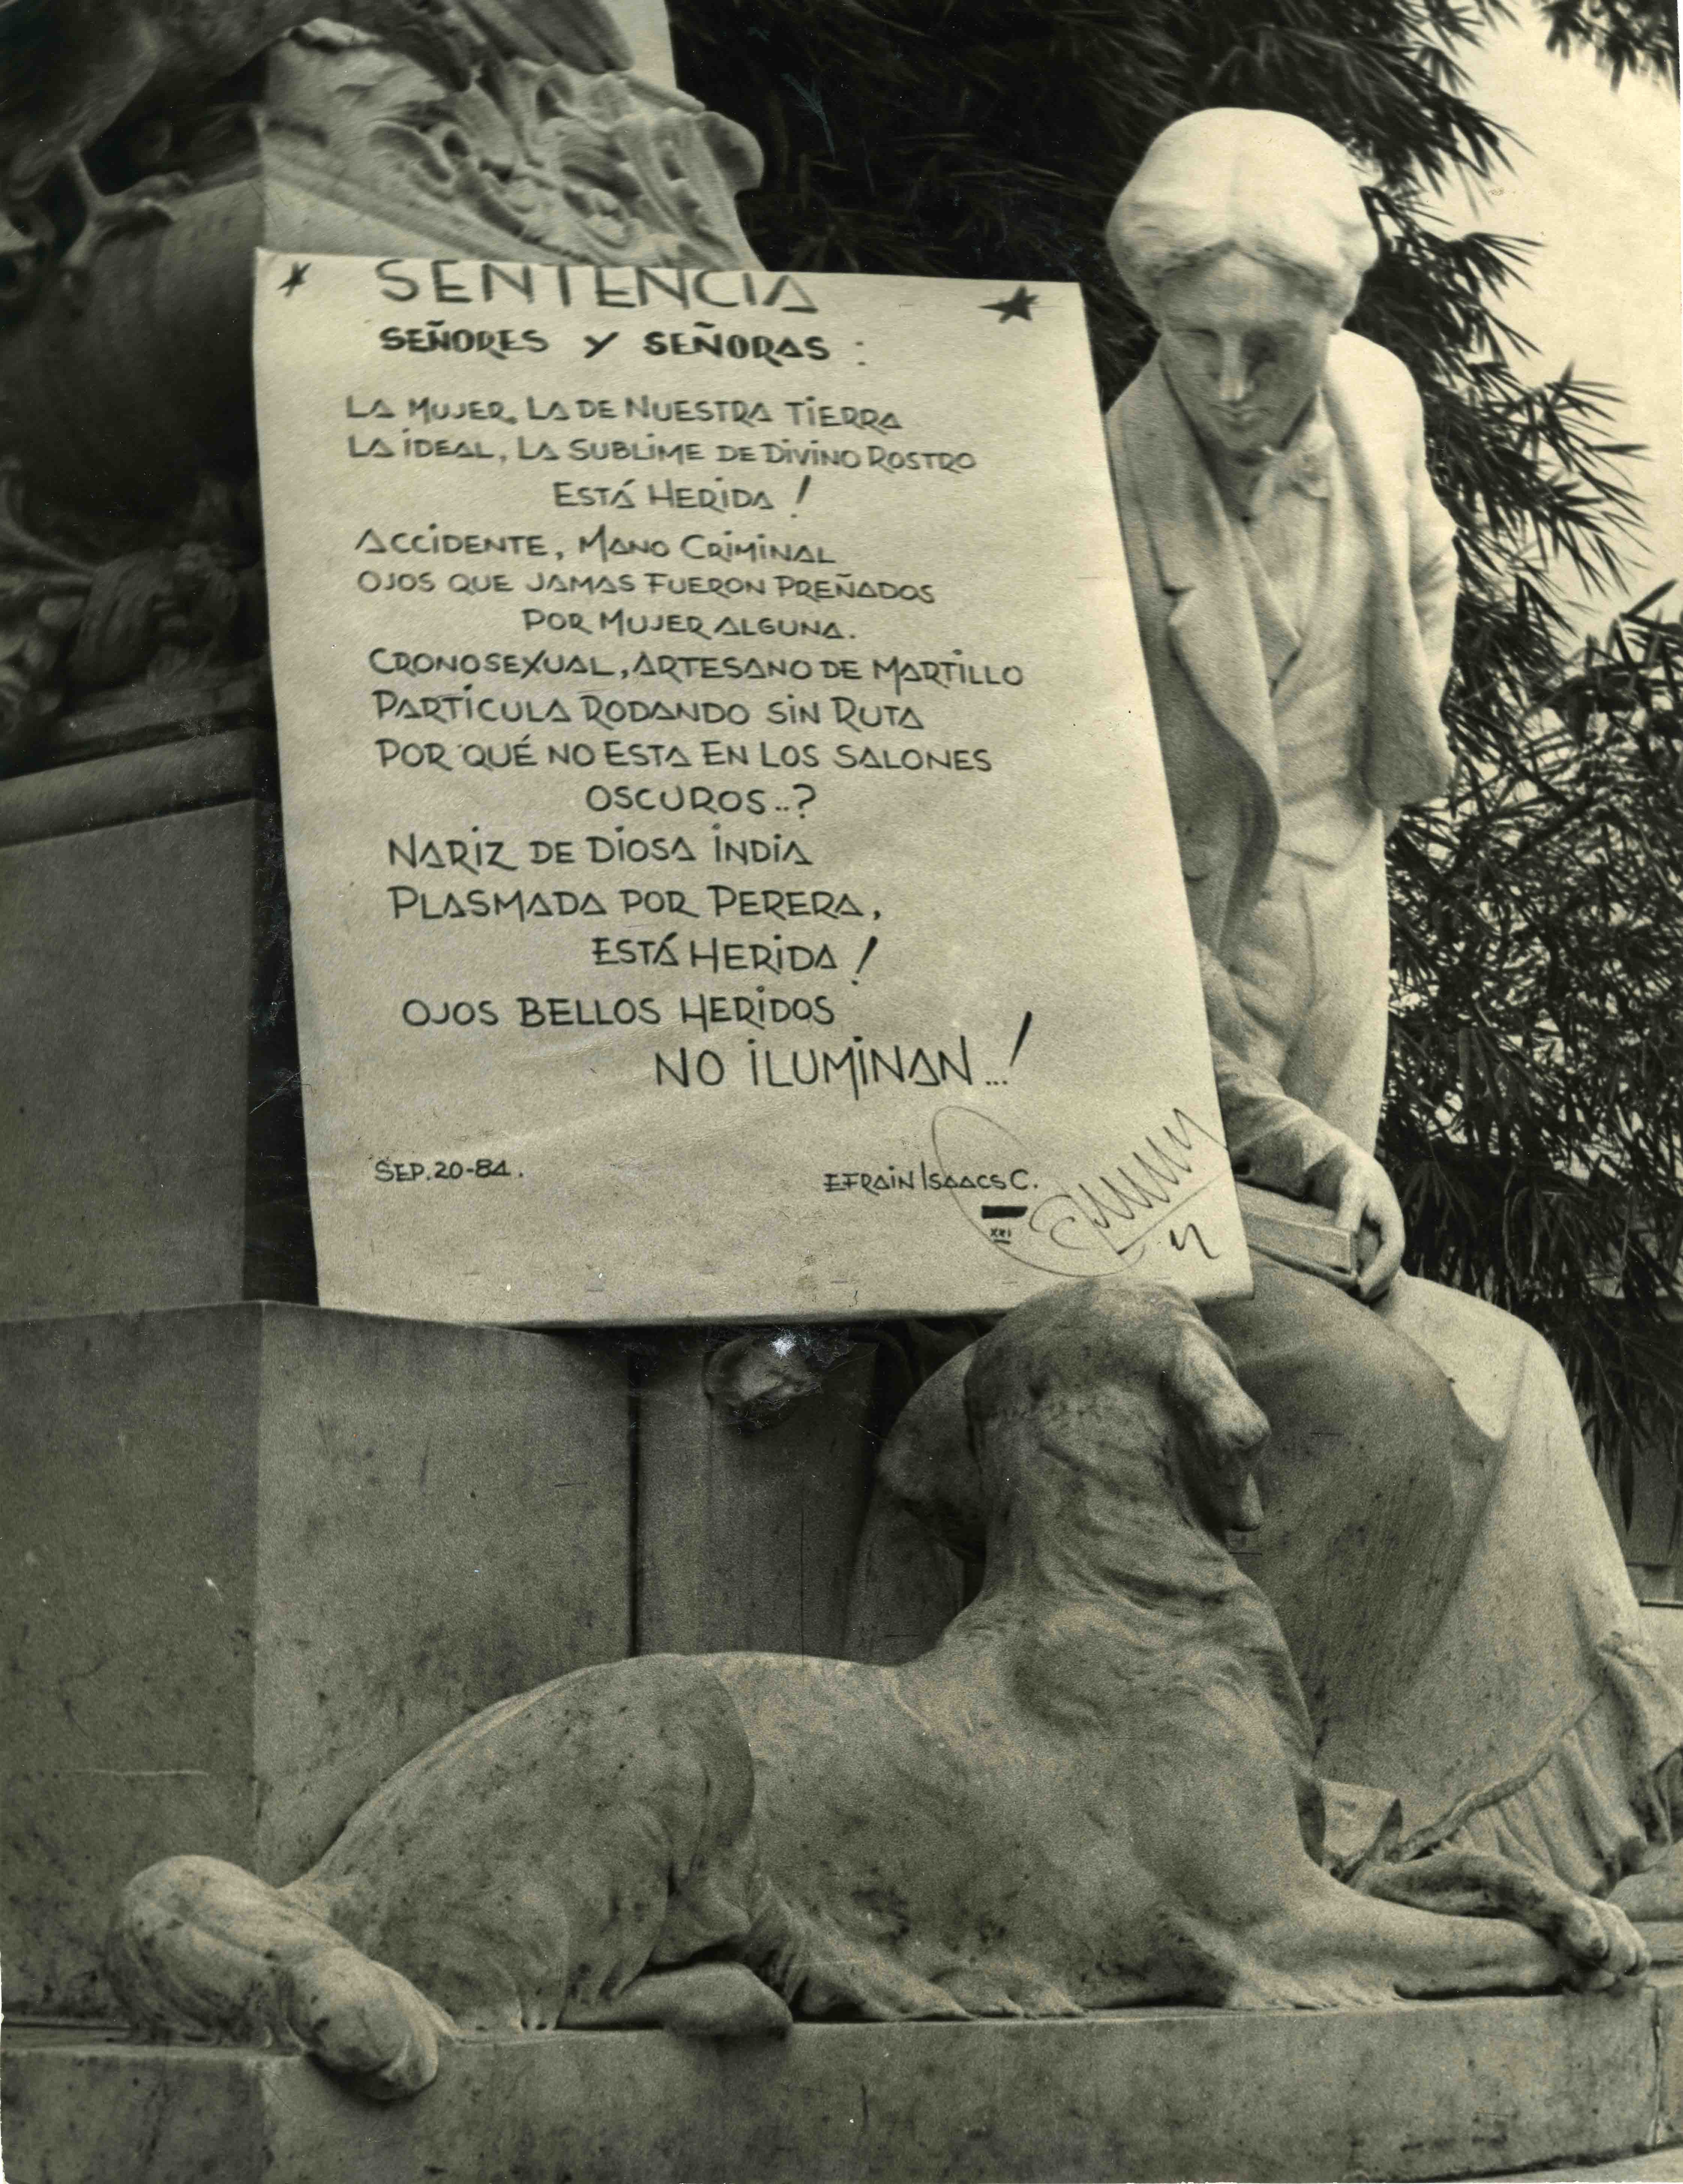 SENTENCIA
SEÑORES Y SEÑORAS :
LA MUJER, LA DE NUESTRA TIERRA
LA IDEAL, LA SUBLIME DE DIVINO ROSTRO
ESTÁ HERIDA !
ACCIDENTE, MANO CRIMINAL
OJOS QUE JAMAS FUERON PREÑADOS
POR MUJER ALGUNA.
CRONOSEXUAL, ARTESANO DE MARTILLO
PARTICULA RODANDO SIN RUTA
POR QUÉ NO ESTA EN LOS SALONES
OSCUROS..?
NARIZ DE DIOSA INDIA
PLASMADA POR PERERA,
ESTÁ HERIDA !
OJOS BELLOS HERIDOS
NO ILUMINAN...!
SEP. 20-84.
EFRAIN ISAACS C.
XXI